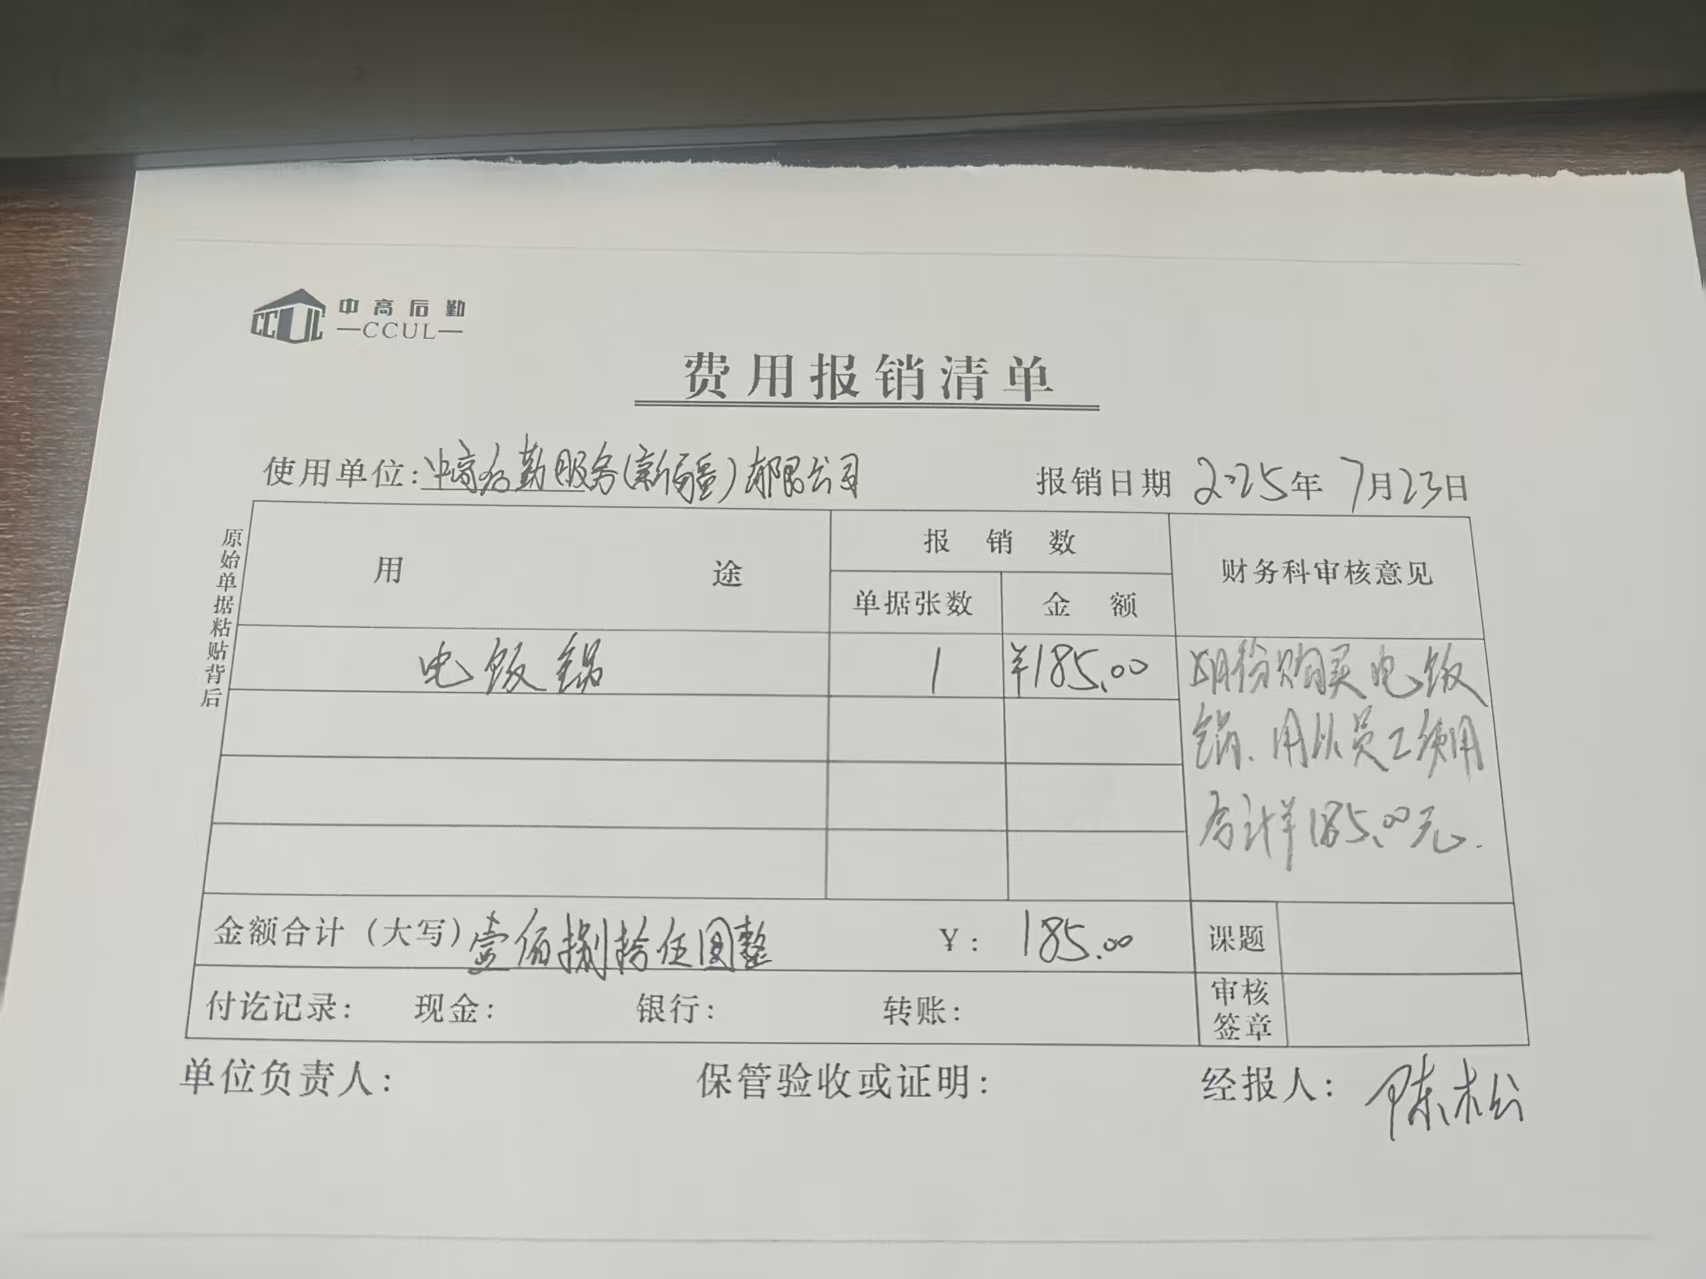 中高后勤
CCUL
费用报销清单
使用单位:中高后勤服务(新疆)有限公司 报销日期 2025年7月23日
原始单据粘贴背后
用途 报销数 财务科审核意见
单据张数 金额
电饭锅 1 ¥185.00
5月份购买电饭
锅、用以员工使用
合计¥185.00元.
金额合计(大写)壹佰捌拾伍圆整 ¥: 185.00 课题
付讫记录: 现金: 银行: 转账: 审核签章
单位负责人: 保管验收或证明: 经报人: 陈松